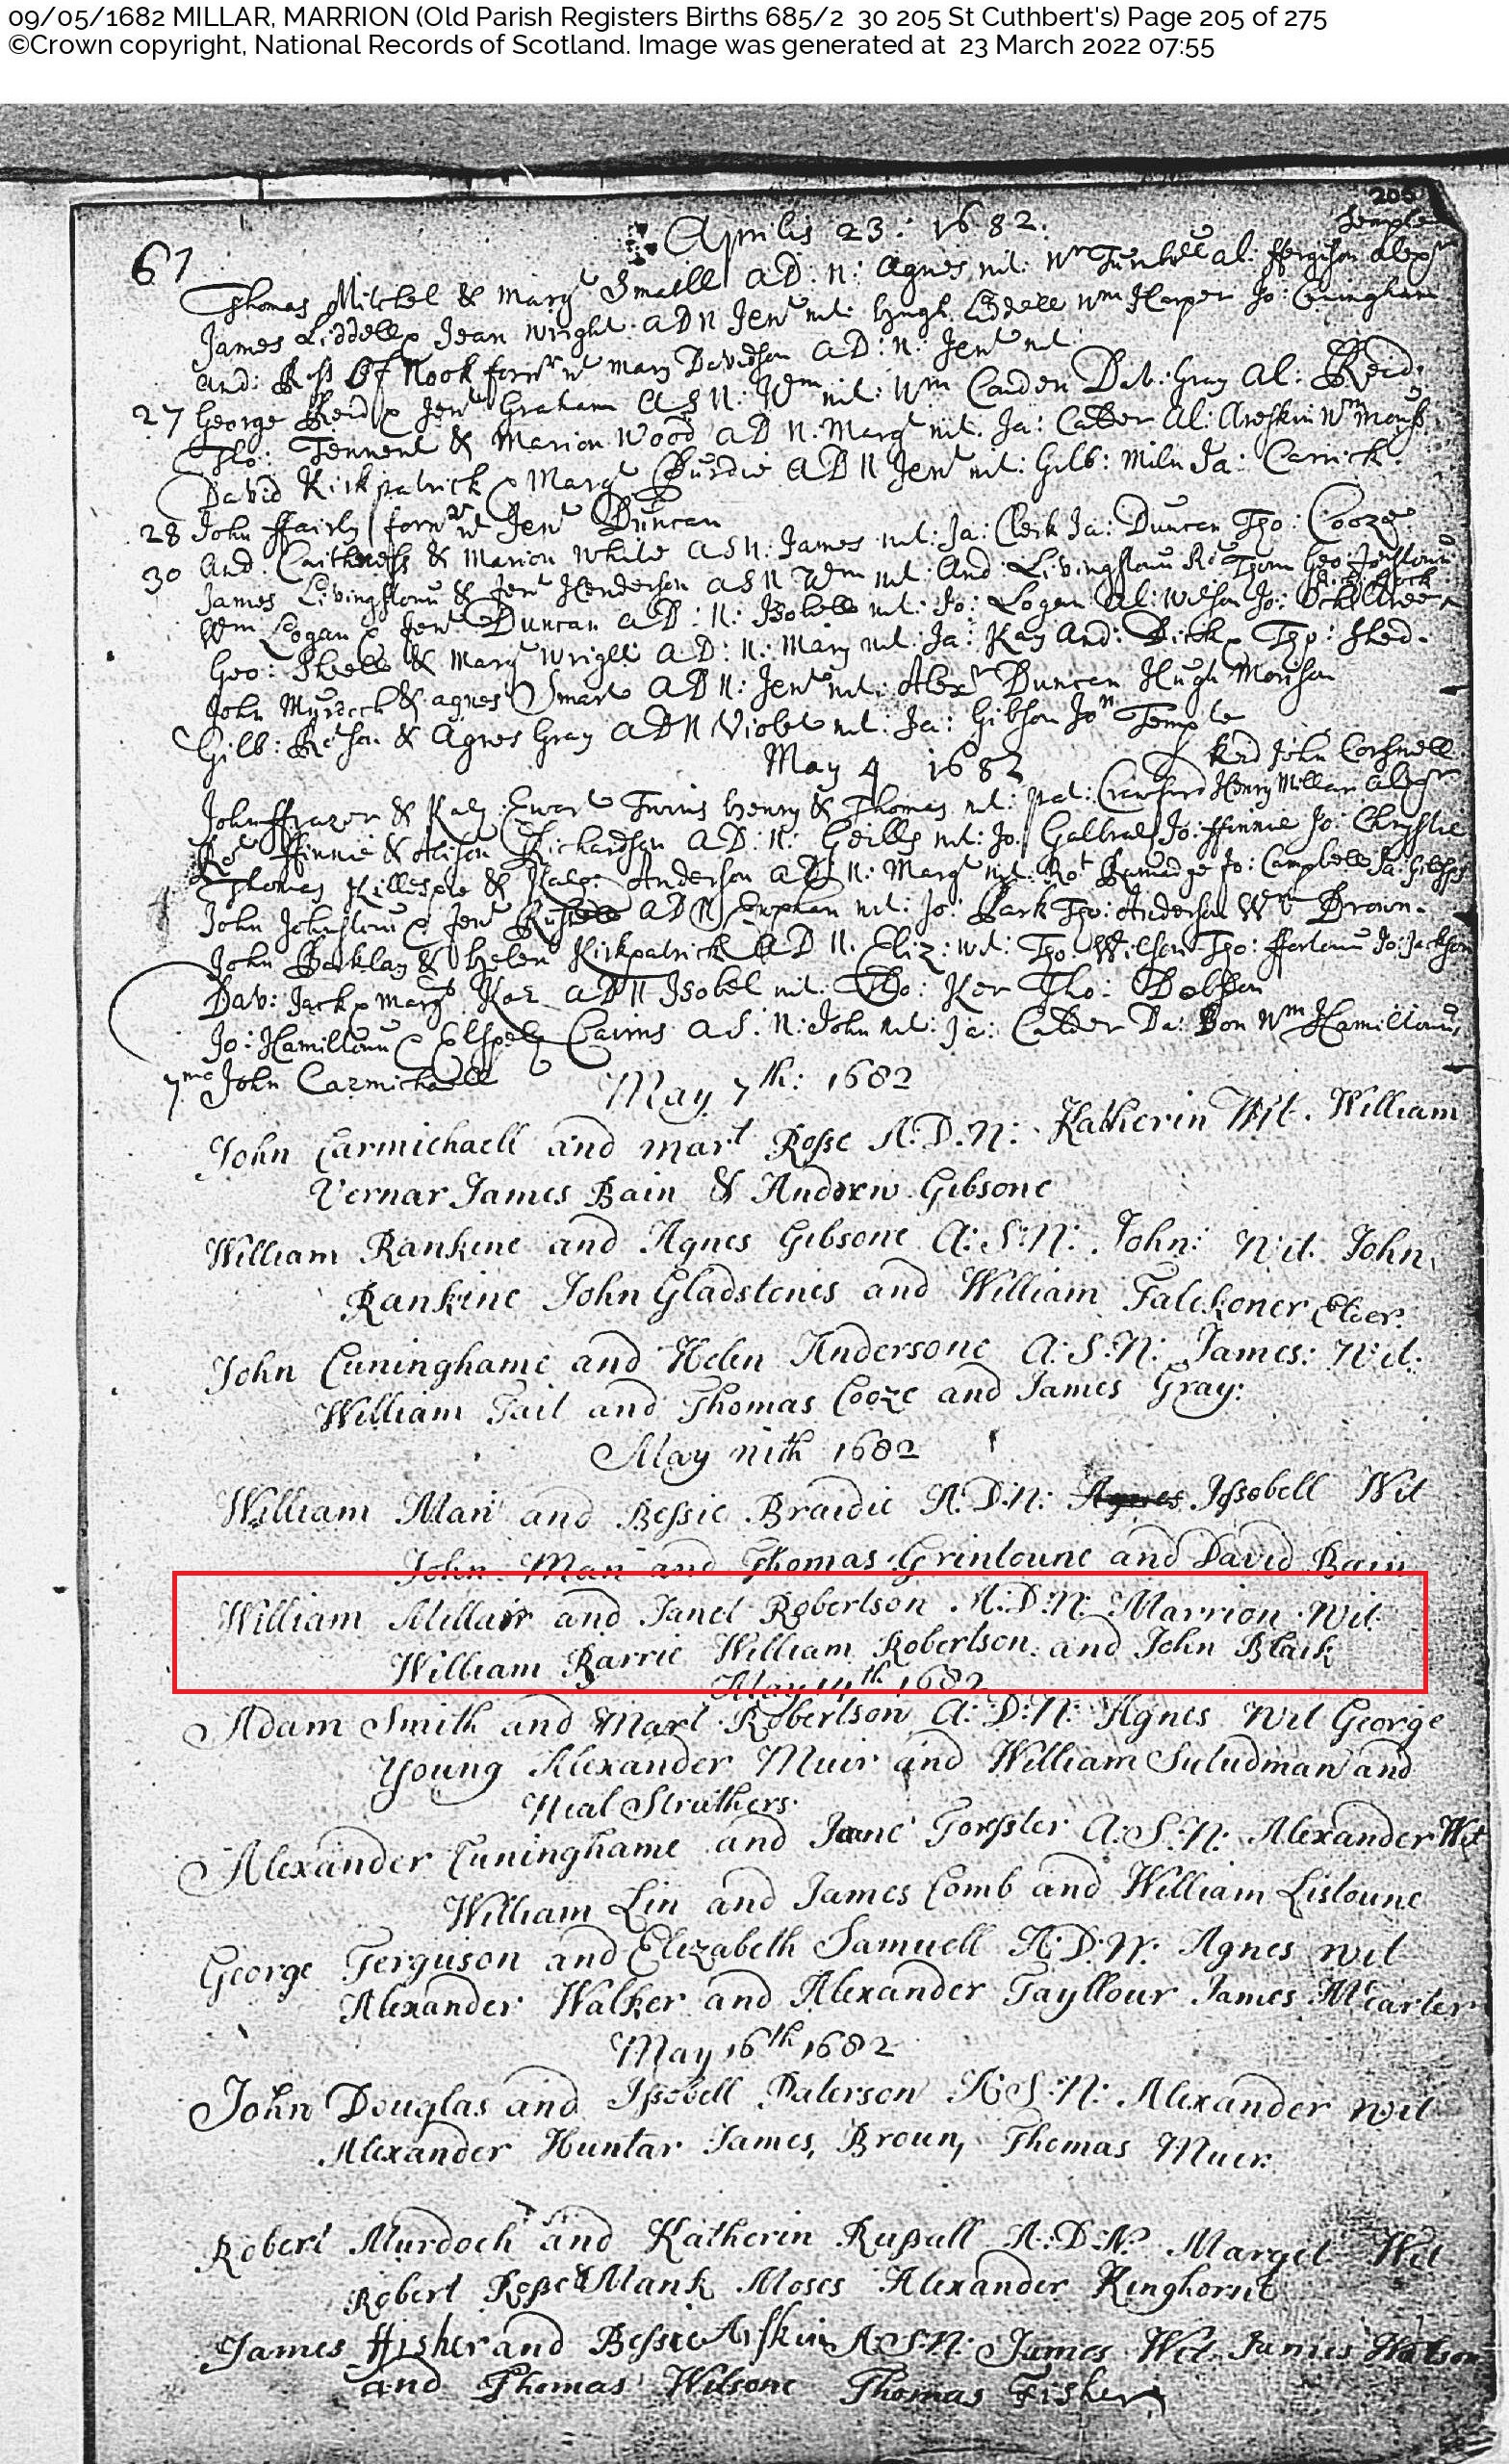 09/05/1682 MILLAR, MARRION (Old Parish Registers Births 685/2 30 205 St Cuthbert's) Page 205 of 275
©Crown copyright, National Records of Scotland. Image was generated at 23 March 2022 07:55
205
Temple
Aprilis 23: 1682:
67
Thomas Mitchel & Margt Smaell A D: n: Agnes nit: Wm Turnbull al: ffergison Alexr
James Liddell & Jean Wright A D N Jent nit: Hugh Liddell Wm Harper Jo: Cuningham
And: Ross Of Nook fornr wt Mary Davidson A D: n: Jent nit
27 George Reid & Jent Graham A S N: Wm nit: Wm Caiden Dab: Gray Al: Reid.
Tho: Tennent & Marion Wood A D N: Margt nit: Ja: Calder Al: Areskin Wm
David Kirkpatrick & Margt Purdie A D N Jent nit: Gilb: Miln Ja: Carrick.
28 John ffairly fornr wt Jent Duncan
30 And: Caithness & Marion White A S N: James nit: Ja: Clerk Ja: Duncan Tho: Cooze
James Livingstoun & Jent Henderson A S N Wm nit: And: Livingstoun Rt Thom Geo: Joystoun
Wm Logan & Jent Duncan A D: N: Isobell nit: Jo: Logan Al: Wilson Jo: Ochiltree
Geo: Shiells & Margt Wright A: D: N: Mary nit: Ja: Kay And: Dick & Tho: Shed.
John Murdoch & Agnes Smart A D N: Jent nit: Alexr Duncan Hugh Morison
Gilb: & Agnes Gray A D N Violet nit: Ja: Gibson Jon Temple
May 4 1682 John Corsnell
John ffrazer & Kat: Ewart Twins Henry & Thomas nit: pat: Crawford Henry Millar Alexr
Rot ffinnie & Alison Richardson A D: N: Geills nit: Jo: Galbrath Jo: ffinnie Jo: Chrystie
Thomas Killespie & Anderson A D N: Margt nit: Rot Ramadge Jo: Campbell Ja: Gibson
John Johnstoun & Jent Russell A D N Euphan nit: Jo: Park Tho: Anderson Wm Broun.
John Barklay & Helen Kirkpatrick A D N. Eliz: wt: Tho: Wilson Tho: Jo: Jackson
Dav: Jack & Margt Ker A D N Isobel nit: Tho: Ker Tho: Dobson
Jo: Hamiltoun & Elspeth Cairns A S: N: John nit: Ja: Calder Da: Don Wm Hamiltoun
7me John Carmichaell May 7th: 1682
John Carmichaell and Mart Rosse A: D: N: Katherin Wit. William
Vernar James Bain & Andrew Gibsone
William Rankine and Agnes Gibsone A: S: N: John: Wit. John
Rankine John Gladstenes and William Falckoner Elder.
John Cuninghame and Helen Andersone A: S: N: James: Wit:
William Tail and Thomas Cooze and James Gray:
May 1682
William Man and Bessie Braidie A: D: N: Agnes Issobell Wit
John Man and Thomas Grintoune and David Bain
William Millair and Janet Robertson A: D: N: Marrion Wit
William Barrie William Robertson. and John Blaik
May 14th 1682
Adam Smith and Mart Robertson A: D: N: Agnes Wit George
Young Alexander Muir and William Suludman and
Neal Struthers.
Alexander Cuninghame and Jane Forsster A: S: N: Alexander Wit
William Lin and James Comb and William Listoune
George Ferguson and Elizabeth Samuell A: D: N: Agnes Wit
Alexander Walker and Alexander Tayllour James Mccarter
May 16th 1682
John Douglas and Issobell Paterson A: S: N: Alexander Wit
Alexander Huntar James, Broun, Thomas Muir:
Robert Murdoch and Katherin Russall A: D: N: Marget Wit
Robert Rosse & Mank Moses Alexander Kinghorne
James ffisher and Bessie Arskin A: S: N: James Wit James Watson
and Thomas Wilsone Thomas Fisher